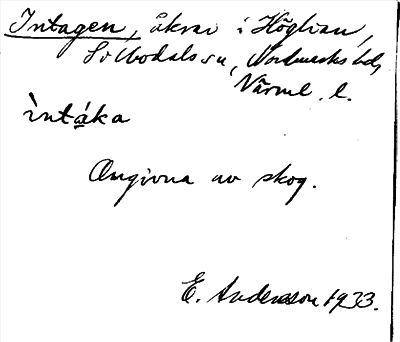 Intagen, åkrar i Höglian,
Sillbodals sn, Nordmarks hd,
Värml. l.
ìntáka
Omgivna av skog.
E. Andersson 1933.